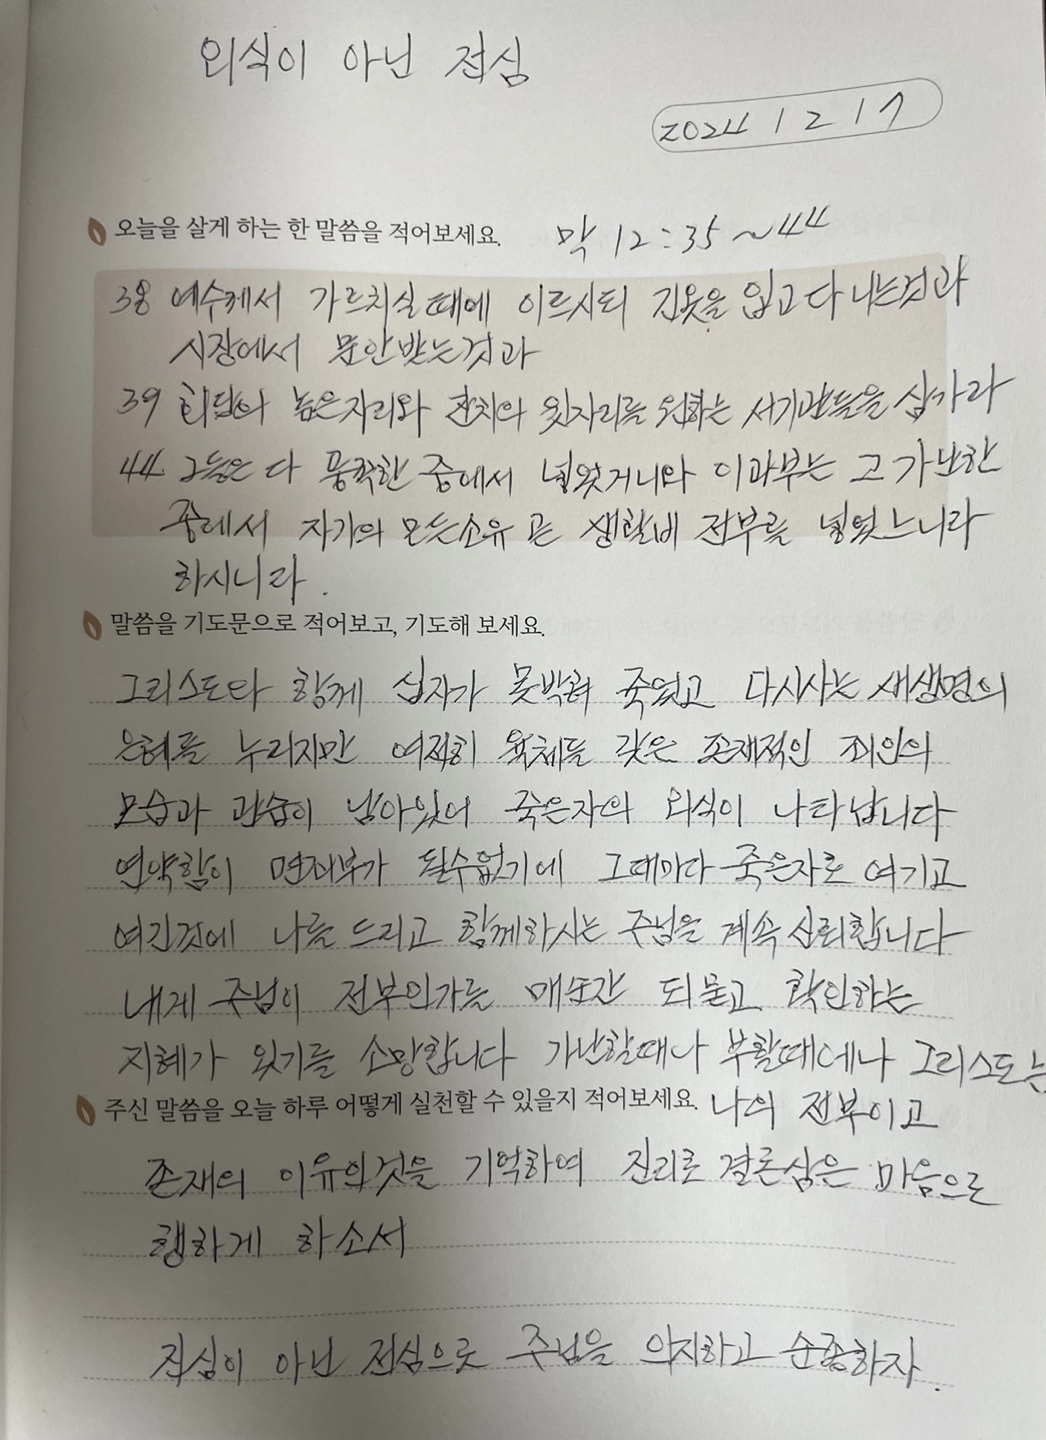 외식이 아닌 전심
2024 12 17
오늘을 살게 하는 한 말씀을 적어보세요.
막 12:35~44
38 예수께서 가르치실 때에 이르시되 긴옷을 입고 다니는것과
시장에서 문안받는것과
39 회당의 높은자리와 잔치의 윗자리를 원하는 서기관들을 삼가라
44. 그들은 다 풍족한 중에서 넣었거니와 이과부는 그 가난한
중에서 자기의 모든소유 곧 생활비 전부를 넣었느니라
하시니라.
말씀을 기도문으로 적어보고, 기도해 보세요.
그리스도와 함께 십자가 못박혀 죽었고 다시사는 새생명의
은혜를 누리지만 여전히 육체를 갖은 존재적인 죄인의
모습과 관습이 남아있어 죽은자의 외식이 나타납니다
연약함이 면죄부가 될수없기에 그때마다 죽은자로 여기고
여긴것에 나를 드리고 함께하시는 주님을 계속 신뢰합니다
내게 주님이 전부인가를 매순간 되묻고 확인하는
지혜가 있기를 소망합니다 가난할때나 부할때에나 그리스도는
주신 말씀을 오늘 하루 어떻게 실천할 수 있을지 적어보세요.
나의 전부이고
존재의 이유인것을 기억하여 진리로 결론삼은 마음으로
행하게 하소서
진심이 아닌 전심으로 주님을 의지하고 순종하자.